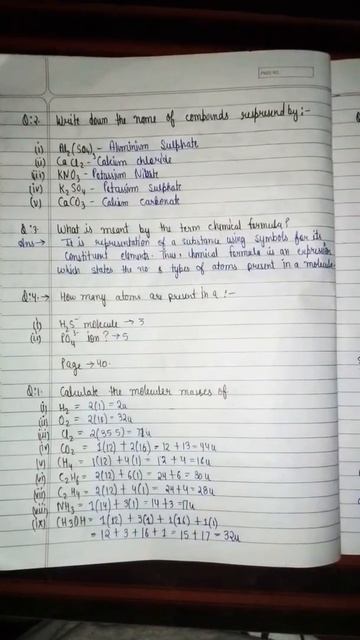 PAGE NO.
Q:2. Write down the name of compounds respresend by:-
(i) Al2(SO4)3 - Aluminium Sulphate
(ii) CaCl2 - Calcium chloride
(iii) KNO3 - Potassium Nitrate
(iv) K2SO4 - Potassium Sulphate
(v) CaCO3 - Calcium carbonate
Q:3. What is meant by the term chemical formula?
Ans→ It is representation of a substance using symbols for its
constituent elements. Thus, chemical formula is an expression
which states the no & types of atoms present in a molecule
Q:4.→ How many atoms are present in a :-
(i) H2S molecule → 3
(ii) PO4 3- ion? → 5
Page → 40.
Q:1. Calculate the molecular masses of
(i) H2 = 2(1) = 2u
(ii) O2 = 2(16) = 32u
(iii) Cl2 = 2(35.5) = 71u
(iv) CO2 = 1(12) + 2(16) = 12 + 13 = 44u
(v) CH4 = 1(12) + 4(1) = 12 + 4 = 16u
(vi) C2H6 = 2(12) + 6(1) = 24 + 6 = 30u
(vii) C2H4 = 2(12) + 4(1) = 24 + 4 = 28u
(viii) NH3 = 1(14) + 3(1) = 14 + 3 = 17u
(ix) CH3OH = 1(12) + 3(1) + 1(16) + 1(1)
= 12 + 3 + 16 + 1 = 15 + 17 = 32u